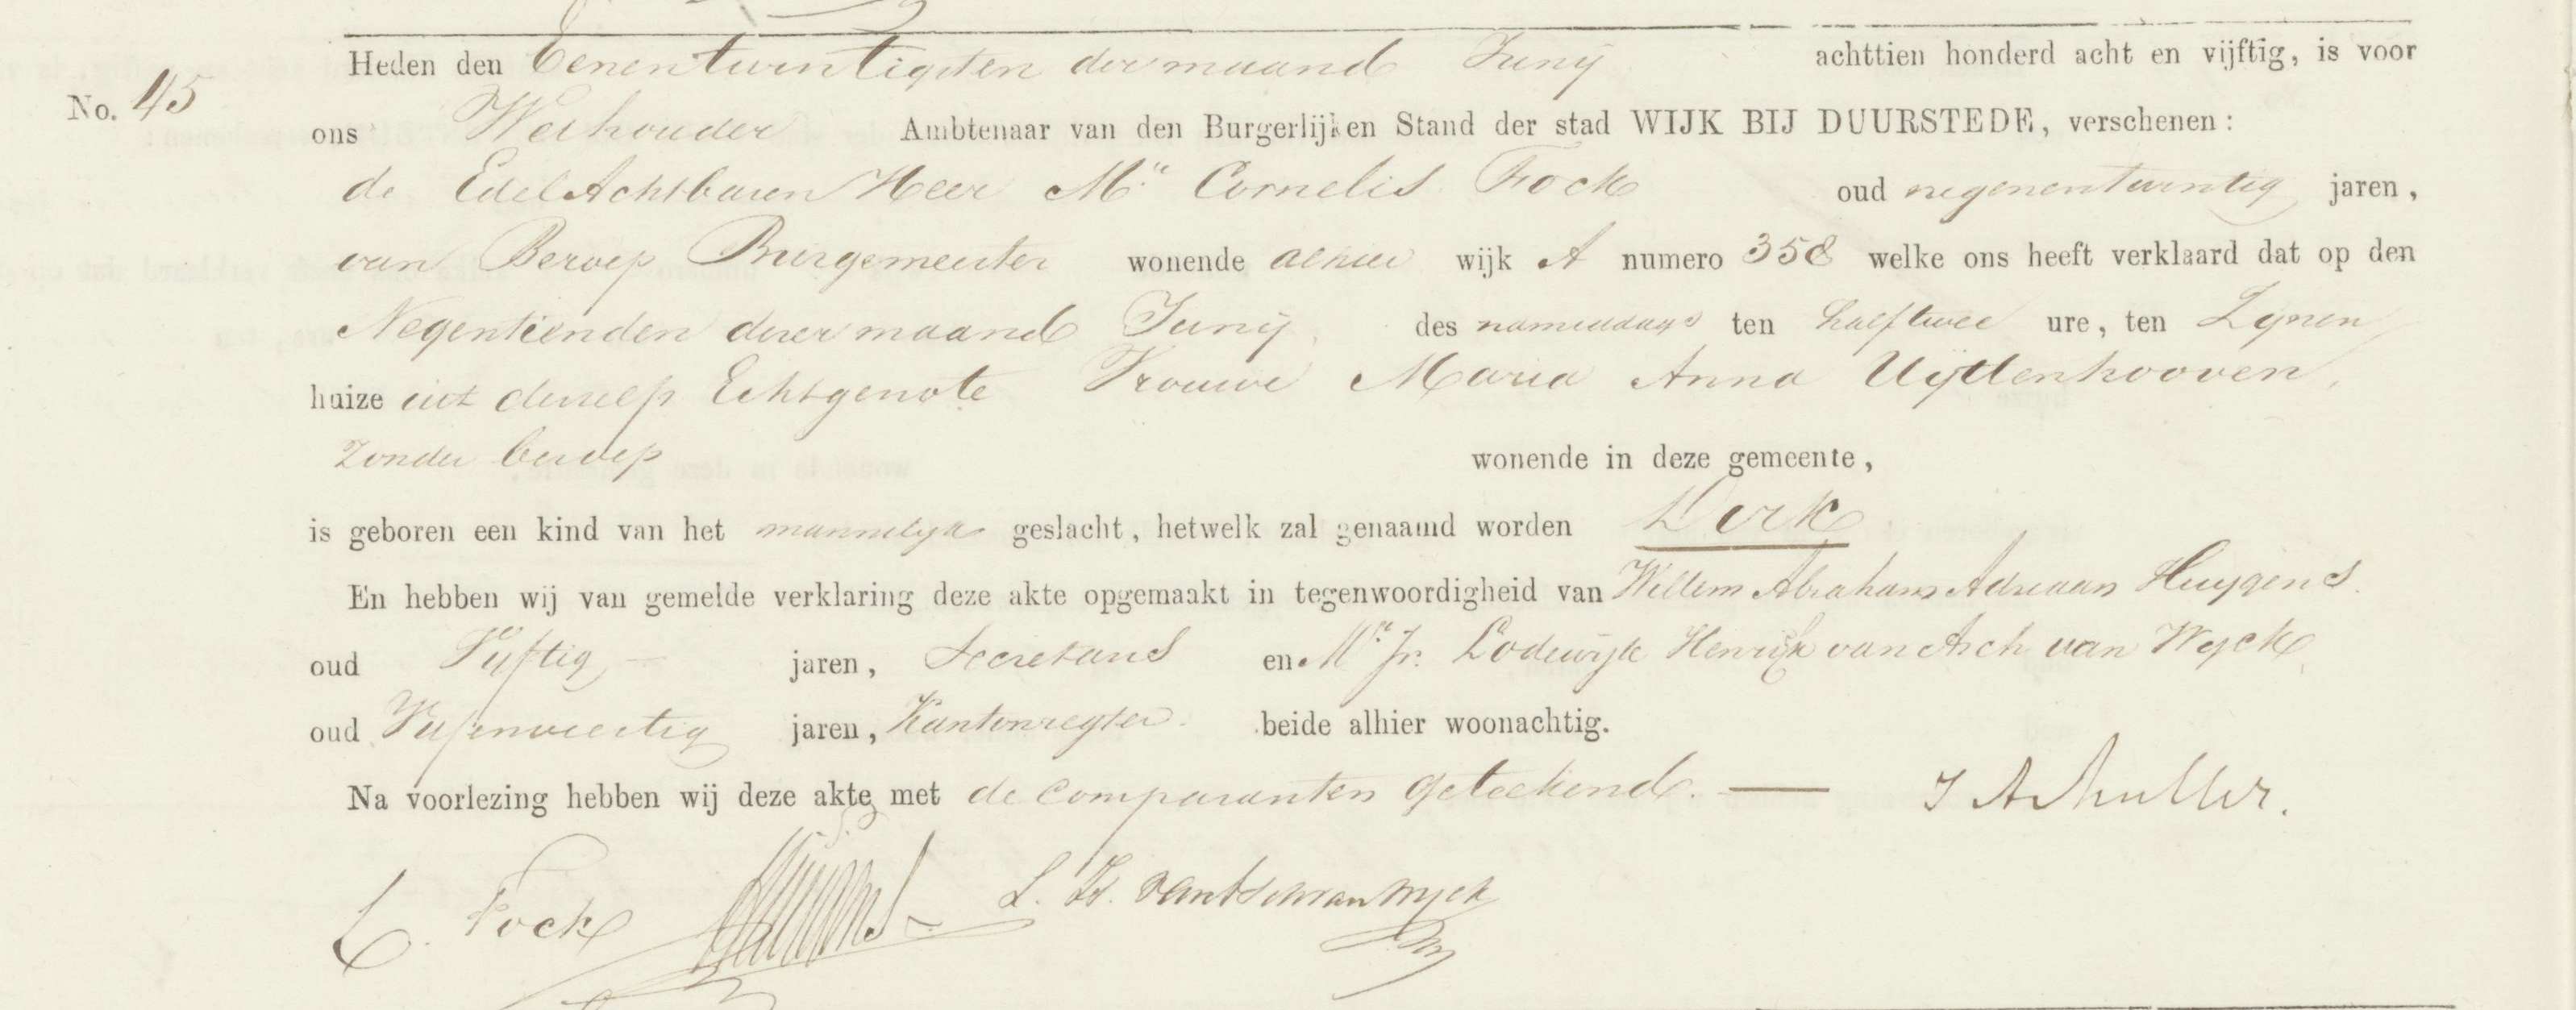 Heden den Eenentwintigsten der maand Junij achttien honderd acht en vijftig, is voor
No. 45
ons Wethouder Ambtenaar van den Burgerlijken Stand der stad WIJK BIJ DUURSTEDE, verschenen:
de EdelAchtbaren Heer Mr. Cornelis Fock oud negenentwintig jaren,
van Beroep Burgemeester wonende alhier wijk A numero 358 welke ons heeft verklaard dat op den
Negentienden dezer maand Junij des namiddags ten half twee ure, ten Zijnen
huize uit deszelfs Echtgenote Vrouwe Maria Anna Uijttenhooven,
Zonder beroep wonende in deze gemeente,
is geboren een kind van het mannelijk geslacht, hetwelk zal genaamd worden Derk
En hebben wij van gemelde verklaring deze akte opgemaakt in tegenwoordigheid van Willem Abraham Adriaan Huygens.
oud Vijftig jaren, Secretaris en Mr. Jr. Lodewijk Henrick van Asch van Wyck
oud Vijfenveertig jaren, Kantonregter. beide alhier woonachtig.
Na voorlezing hebben wij deze akte met de Comparanten geteekend. —
C. Fock L. H. van Asch van Wyck